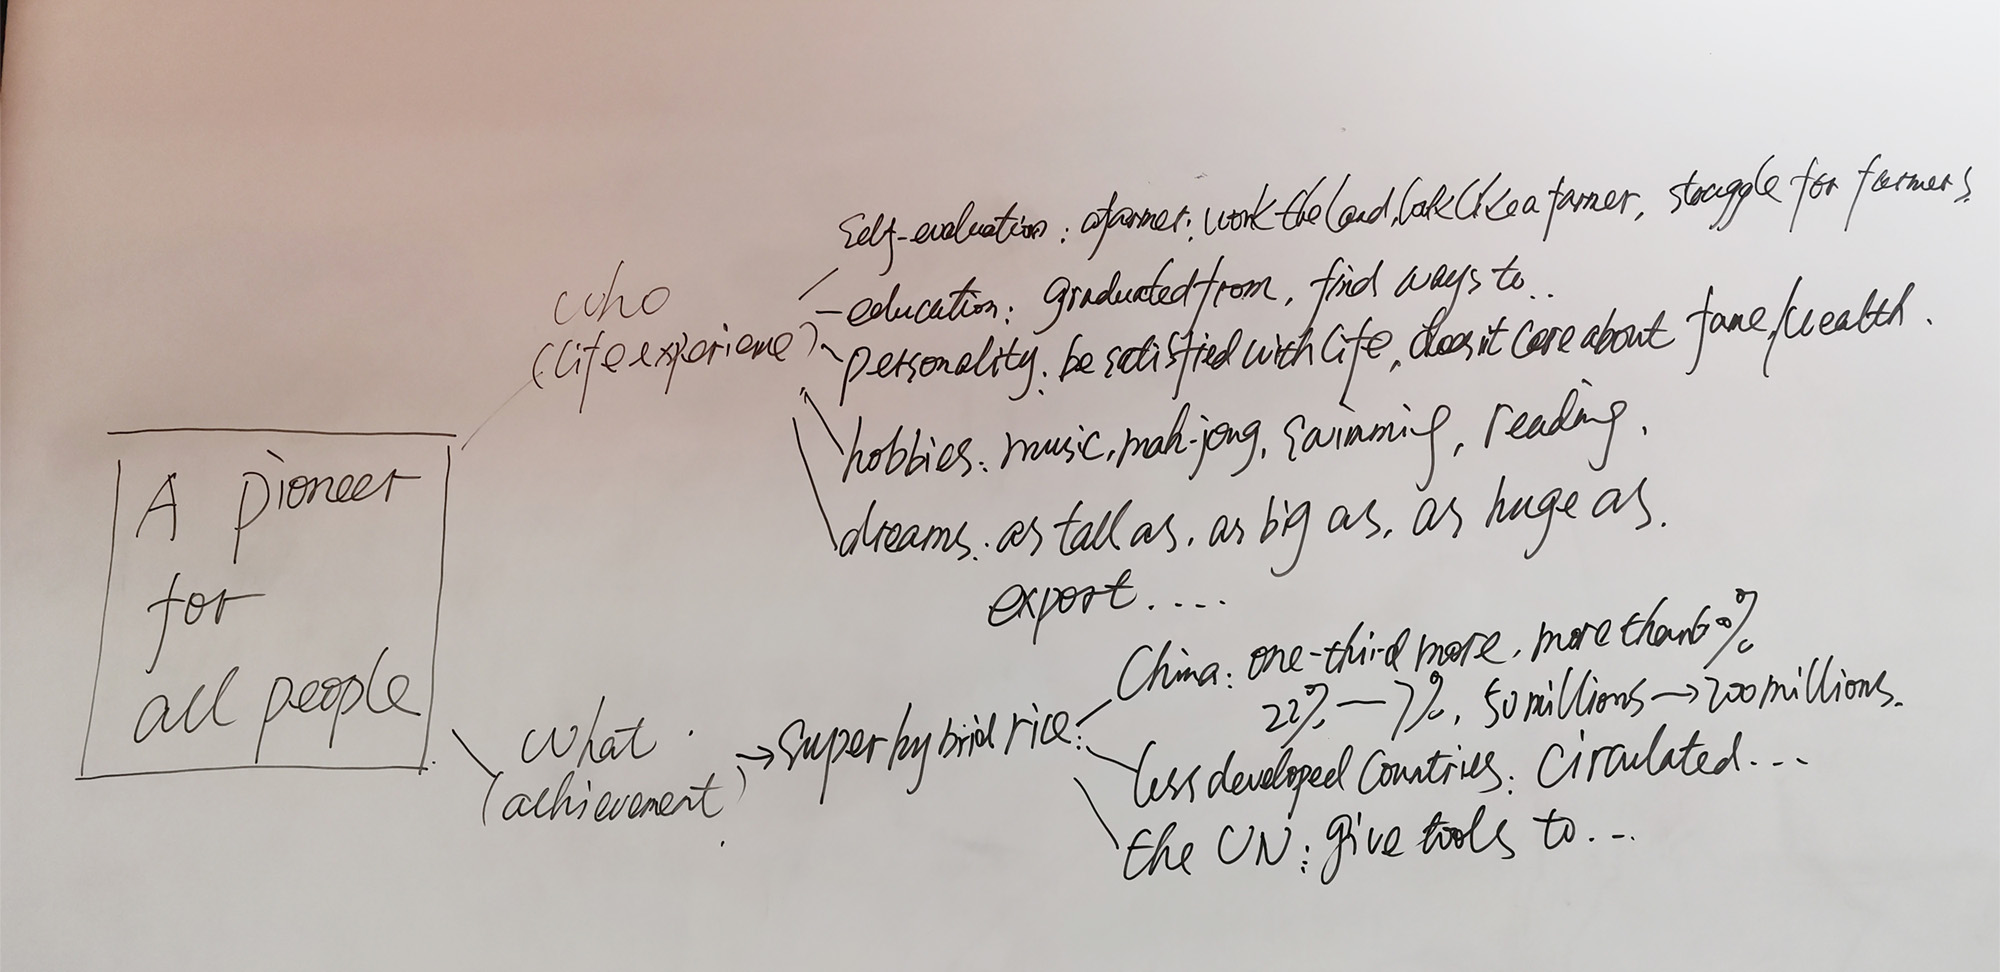 A pioneer
for
all people
who
(life experience)
Self-evaluation: a farmer: work the land, look like a farmer, struggle for farmers
education: graduated from, find ways to..
personality: be satisfied with life, doesn't care about fame/wealth.
hobbies: music, mah-jong, swimming, reading.
dreams: as tall as, as big as, as huge as.
export....
what
(achievement)
→ super hybrid rice:
China: one-third more, more than 60%
22%—7%, 50 millions → 200 millions.
less developed countries: circulated...
the UN: give tools to...